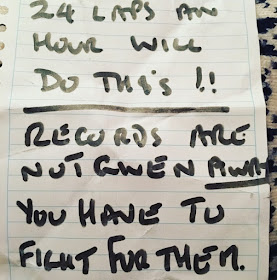 24 LAPS AN
HOUR WILL
DO THIS !!
RECORDS ARE
NOT GIVEN AWAY
YOU HAVE TO
FIGHT FOR THEM.